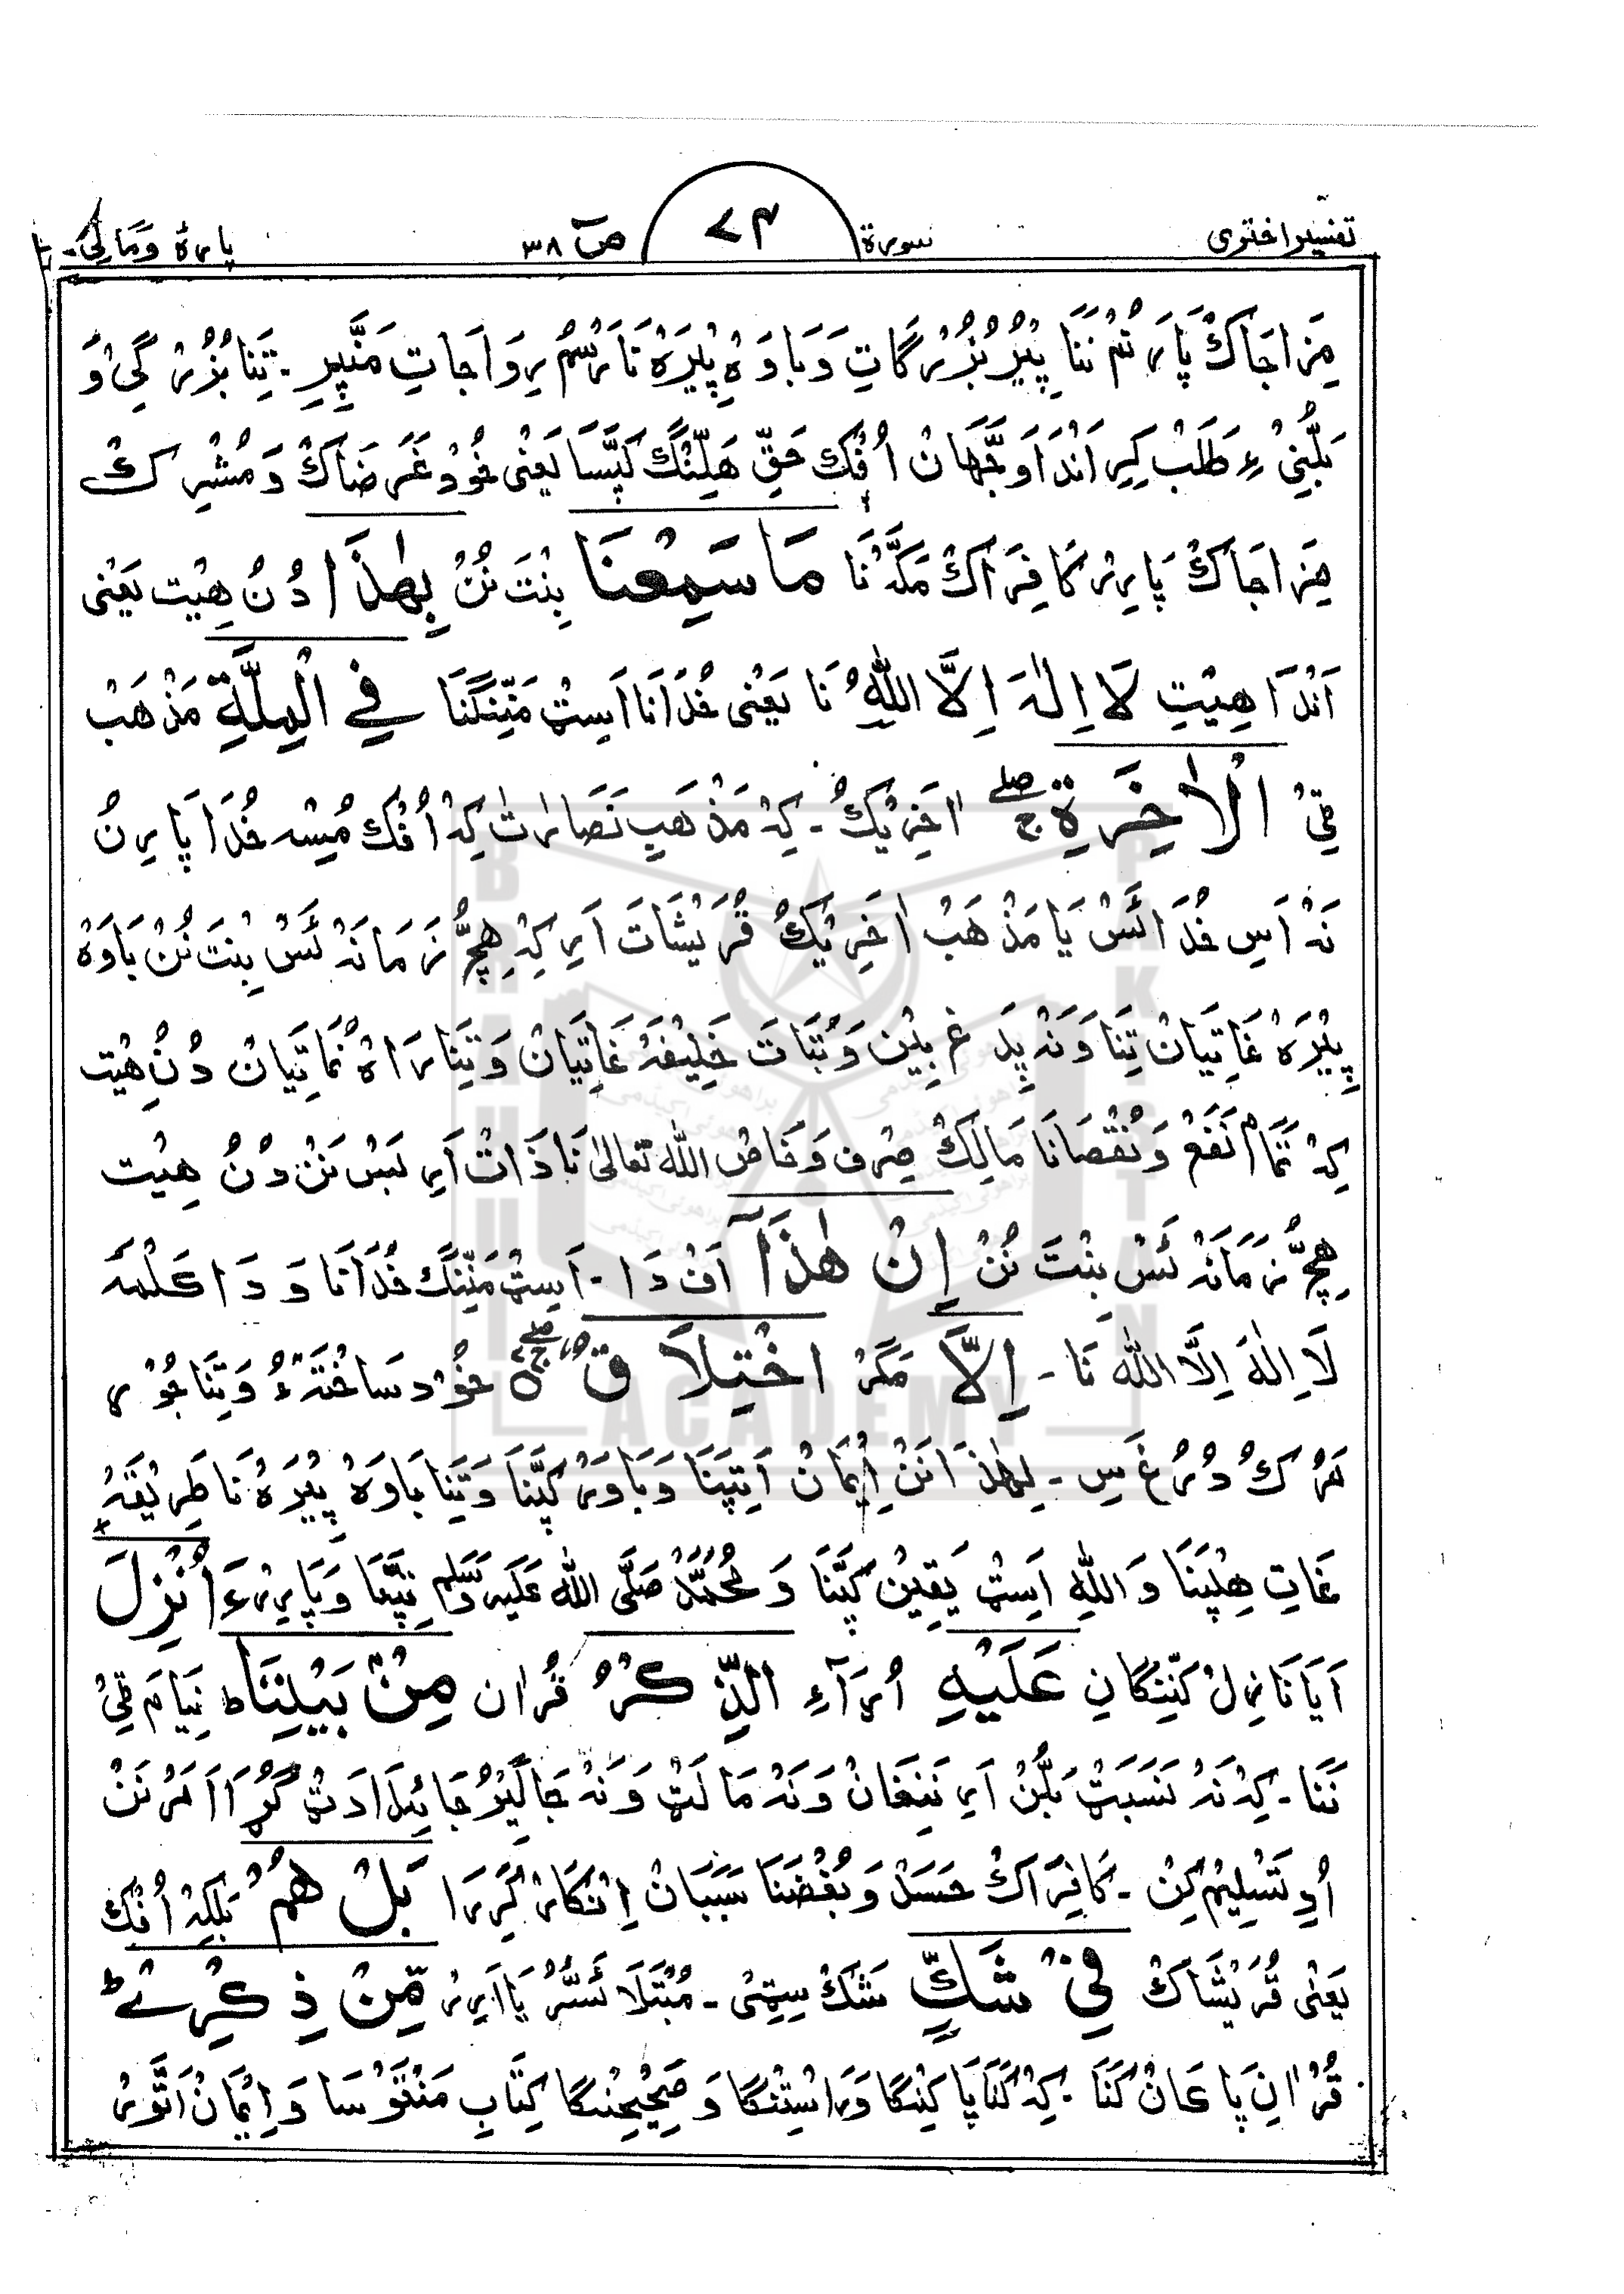 تفسیر اختری سورۃ ۷۴ صٓ ۳۸ پارہ وَمَالِیَ
مِزَاجَاکْ پَارَ نُمْ نَنَا پِیْرُ بُزُرْگَاتِ وَبَاوَہْ پِیْرَہْ نَا رَسْمُ رِوَاجَاتِ مَنَّپِیرِ۔ تِنَا بُزُرْگِیْ وَ
بَلُّنِیْ ءِ طَلَبْ کِیرِ اَنْدَاوَجَّہَانْ اُفْکْ حَقِّ ہَلِّنْگَ کَپَّسَا یَعْنٰی خُوْدْ غَرَضَاکْ وَ مُشْرِکْ
مِزَاجَاکْ پَارِیْر کَافِرَاکْ مَکَّہْ نَا مَا سَمِعْنَا بِنْتَ نُنْ بِهٰذَا دُنْ ہِیْت یَعْنٰی
اَنْدَا ہِیْتِ لَا اِلٰہَ اِلَّا اللهُ نَا یَعْنٰی خُدَانَا اَسِٹْ مَنِّنْگَنَا فِي الْمِلَّةِ مَذْہَبْ
قِیْ الْاٰخِرَةِ ۖۚ اٰخِرِیْکُ۔ کِہْ مَذْہَبِ نَصَارٰات کِہْ اُفْکْ مُسِہْ خُدَا پَارِنُ
نَہْ اَسِ خُدَائَسْ یَا مَذْہَبْ اٰخِرِیْکُ قُرَیْشَاتَ اَرِ کِہْ ہِچُّ زَمَانَہْ ئَسْ بِنْتَ نُنْ بَاوَہْ
پِیْرَہْ غَاتِیَانْ تِنَا وَنَہْ پِدَ غَرِیْبِنْ وَ بُتَاتَ خَلِیْفَہْ غَاتِیَانْ وَتِنَا رَاہْنُمَاتِیَانْ دُنْ ہِیْت
کِہْ تَمَامْ نَفَعْ وَنُقْصَانَا مَالِکْ صِرْف وَخَاصْ اللّٰہ تَعَالٰی نَا ذَاتْ اَرِ بَسْ نَنْ دُنْ ہِیْت
ہِچُّ زَمَانَہْ ئَسْ بِنْتَ نُنْ اِنْ هٰذَاۤ اَفْ دَا۔ اَسِٹْ مَنِّنْگ خُدَانَا وَ دَا کَلْمَہ
لَا اِلٰہَ اِلَّا اللّٰہ نَا۔ اِلَّا مَگَرْ اخْتِلَاقٌ ۖۚ خُوْد سَاخْتَہْ ءُ وَتِنَا جُوْر
کَرْکُ دُرُغَ سِ۔ لِہٰذَا نَنْ اِیْمَانْ اَتِپَنَا وَبَاوَرْ کَپَّنَا وَتِنَا بَاوَہْ پِیْرَہْ نَا طَرِیْقَہْ
غَاتِ ہِلِپَنَا وَ اللّٰہِ اَسِٹْ یَقِیْنْ کَپَّنَا وَ مُحَمَّدْ صَلَّی اللّٰہ عَلَیْہِ وَسَلَّم نِپَّنَا وَپَارِیْرْ ءَ اُنْزِلَ
اَیَا نَازِلْ کَنِّنْگَانِ عَلَيْهِ اُرَآءِ الذِّكْرُ قُرْاٰن مِنْۢ بَيْنِنَا ؕ نِیَامَ ٹِیْ
نَنَا۔ کِہْ نَہْ نَسَبَتْ بَلُّنْ اَرِ نَنِغَانْ وَنَہْ مَالَتْ وَنَہْ جَاگِیْرُ جَائِدَادَتْ گُڑَا اَمَرْ نَنْ
اُدِ تَسْلِیْم کِنْ۔ کَافِرَاکْ حَسَدْ وَ بُغْضَنَا سَبَبَانْ اِنْکَارْ کَرِرَا بَلْ هُمْ بَلْکِہْ اُفْکْ
یَعْنٰی قُرَیْشَاکْ فِيْ شَكٍّ شَکْ سِٹِیْ۔ مُبْتَلَا ئَسُّرْ یَا اَرِیْر مِّنْ ذِكْرِيْ ۚ
قُرْاٰنِ پَاغَانْ کَنَا۔ کِہْ کَنَا پَاکِنْگَا وَرَاسْتِنْگَا وَ صَحِیْحِنْگَا کِتَابِ مَنْتَوْسَا وَ اِیْمَانْ اَتَّوْرْ